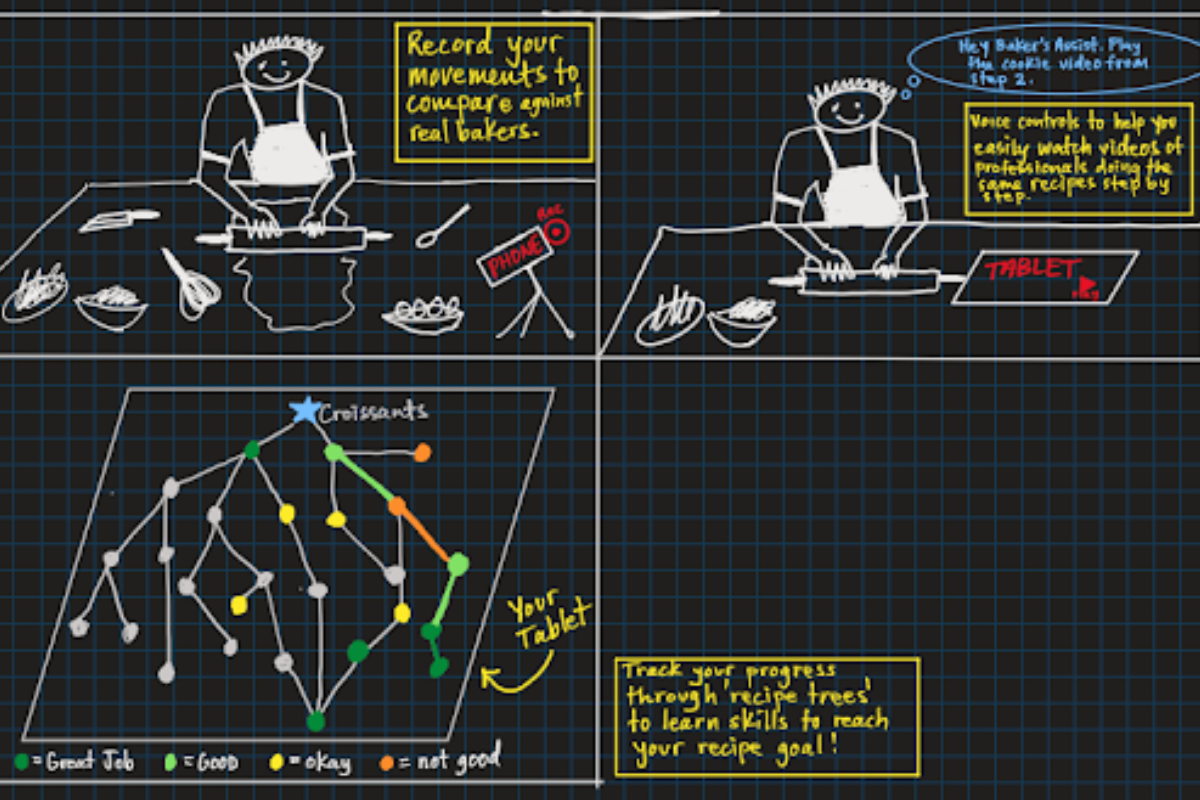 Record your
movements to
compare against
real bakers.
REC
PHONE
Hey Baker's Assist. Play
the cookie video from
step 2.
Voice controls to help you
easily watch videos of
professionals doing the
same recipes step by
step.
TABLET
Play
Croissants
Your
Tablet
= Great Job = GOOD = okay = not good
Track your progress
through 'recipe trees'
to learn skills to reach
your recipe goal!